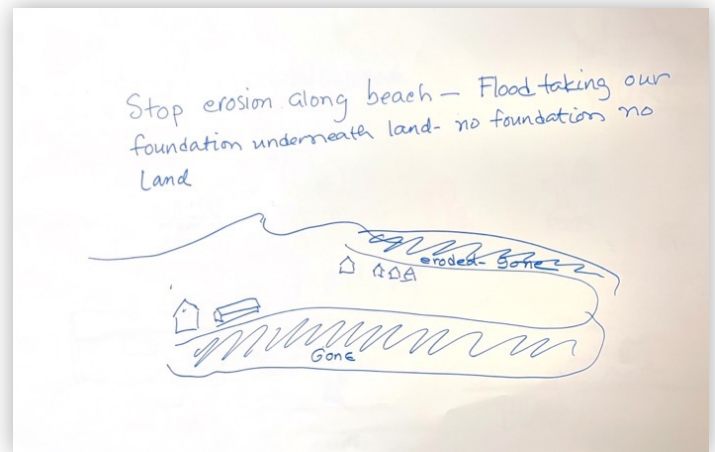 Stop erosion along beach — Flood taking our
foundation underneath land - no foundation no
Land
eroded - Gone
Gone